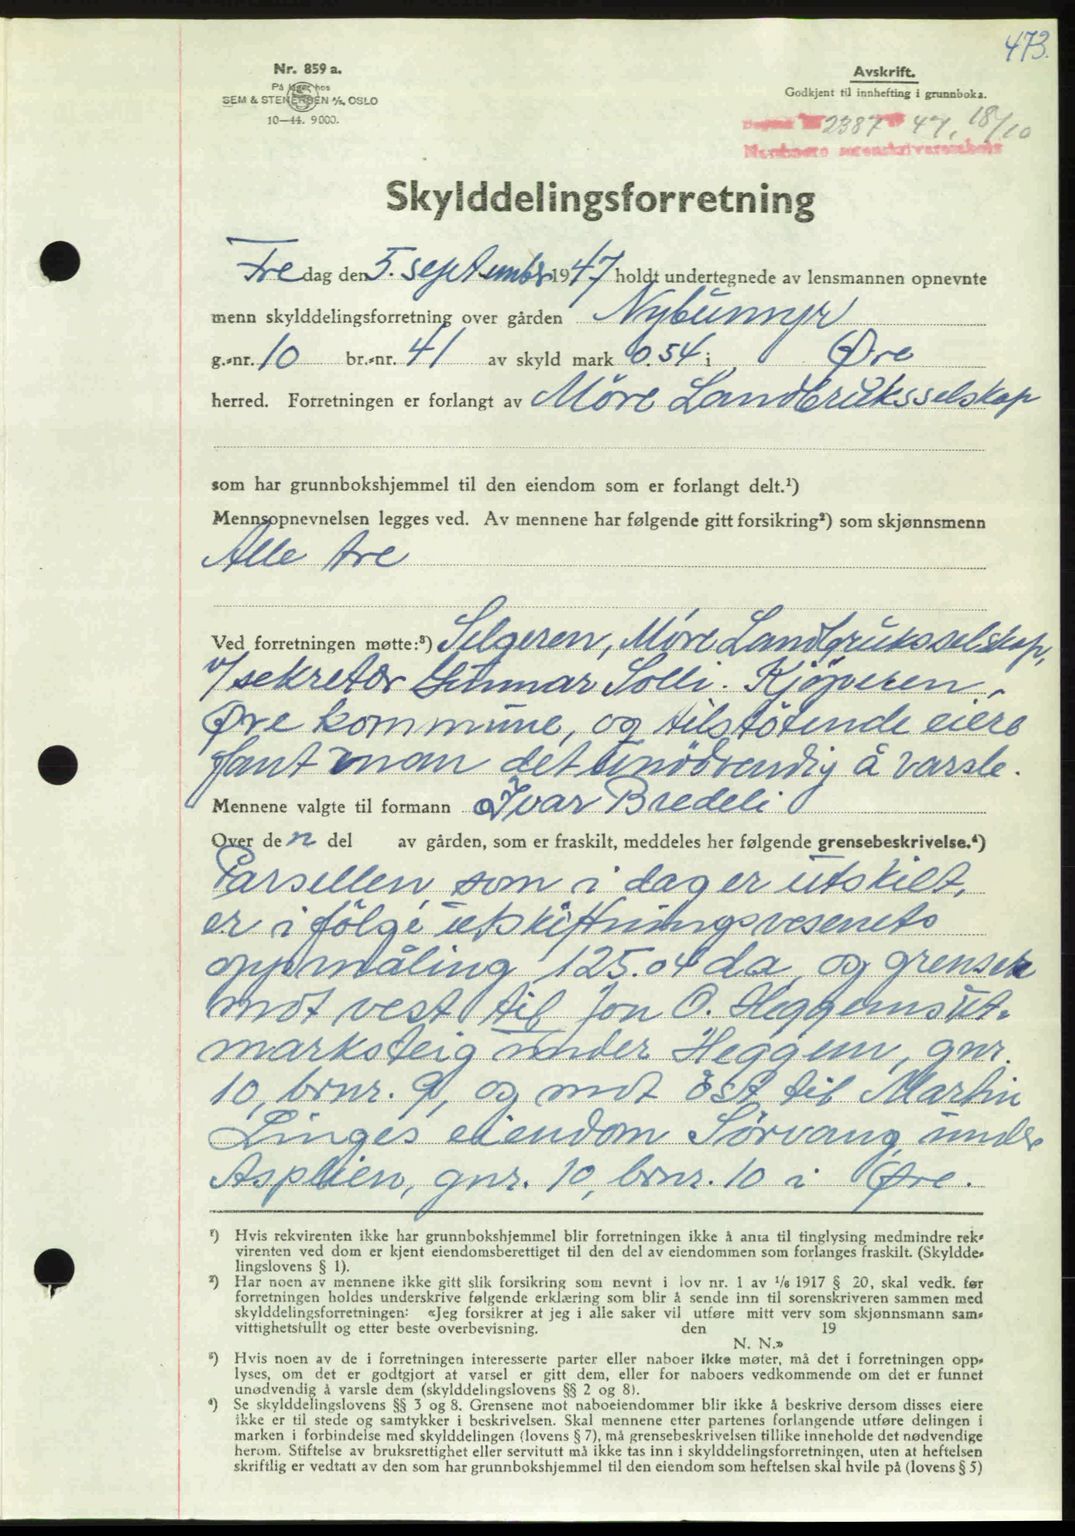 473.
Nr. 859 a.
På lager hos
SEM & STENERSEN A/S, OSLO
10—44. 9000.
Avskrift.
Godkjent til innhefting i grunnboka.
2387 47, 18/10
Nordmøre sorenskriverembete
Skylddelingsforretning
Fredag den 5. september 1947 holdt undertegnede av lensmannen opnevnte
menn skylddelingsforretning over gården Nybumyr
g.-nr. 10 br.-nr. 41 av skyld mark 0.54 i Øre
herred. Forretningen er forlangt av Möre Landbruksselskap
som har grunnbokshjemmel til den eiendom som er forlangt delt.¹)
Mennsopnevnelsen legges ved. Av mennene har følgende gitt forsikring²) som skjønnsmenn
Alle tre
Ved forretningen møtte:³) Selgeren, Möre Landbruksselskap,
v/sekretær Gunnar Solli. Kjöperen,
Øre kommune, og tilstötende eiere
fant man det unödvendig å varsle.
Mennene valgte til formann Ivar Bredeli
Over den del av gården, som er fraskilt, meddeles her følgende grensebeskrivelse.⁴)
Parsellen, som i dag er utskilt,
er ifölge utskiftningsvesenets
oppmåling 125.04 da, og grenser
mot vest til Jon O. Heggems ut-
marksteig under Heggem, gnr.
10, brnr. 9, og mot öst til Martin
Linges eiendom Sörvang under
Asplien, gnr. 10, brnr. 10 i Øre.
¹) Hvis rekvirenten ikke har grunnbokshjemmel blir forretningen ikke å anta til tinglysing medmindre rek-
virenten ved dom er kjent eiendomsberettiget til den del av eiendommen som forlanges fraskilt. (Skyldde-
lingslovens § 1).
²) Har noen av mennene ikke gitt slik forsikring som nevnt i lov nr. 1 av 1/6 1917 § 20, skal vedk. før
forretningen holdes underskrive følgende erklæring som blir å sende inn til sorenskriveren sammen med
skylddelingsforretningen: «Jeg forsikrer at jeg i alle saker vil utføre mitt verv som skjønnsmann sam-
vittighetsfullt og etter beste overbevisning. den 19
N. N.»
³) Hvis noen av de i forretningen interesserte parter eller naboer ikke møter, må det i forretningen opp-
lyses, om det er godtgjort at varsel er gitt dem, eller for naboers vedkommende om det er funnet
unødvendig å varsle dem (skylddelingslovens §§ 2 og 8).
⁴) Se skylddelingslovens §§ 3 og 8. Grensene mot naboeiendommer blir ikke å beskrive dersom disses eiere
ikke er til stede og samtykker i beskrivelsen. Skal mennene etter partenes forlangende utføre delingen i
marken i forbindelse med skylddelingen (lovens § 7), må grensebeskrivelsen tillike inneholde det nødvendige
herom. Stiftelse av bruksrettighet eller servitutt må ikke tas inn i skylddelingsforretningen, uten at heftelsen
skriftlig er vedtatt av den som har grunnbokshjemmel til den eiendom som heftelsen skal hvile på (lovens § 5)